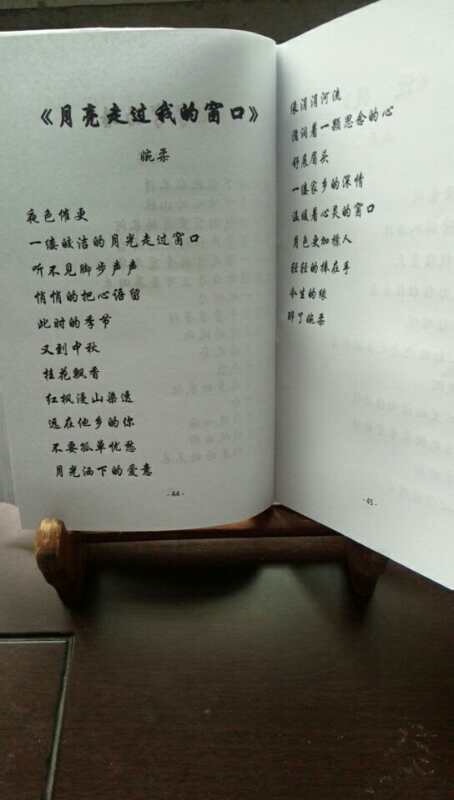 《月亮走过我的窗口》
婉柔
夜色催更
一缕皎洁的月光走过窗口
听不见脚步声声
悄悄的把心语留
此时的季节
又到中秋
桂花飘香
红枫漫山染透
远在他乡的你
不要孤单忧愁
月光洒下的爱意
- 44 -
像涓涓河流
滋润着一颗思念的心
舒展眉头
一缕家乡的深情
温暖着心灵的窗口
月色更加撩人
轻轻的捧在手
今生的缘
醉了婉柔
- 45 -